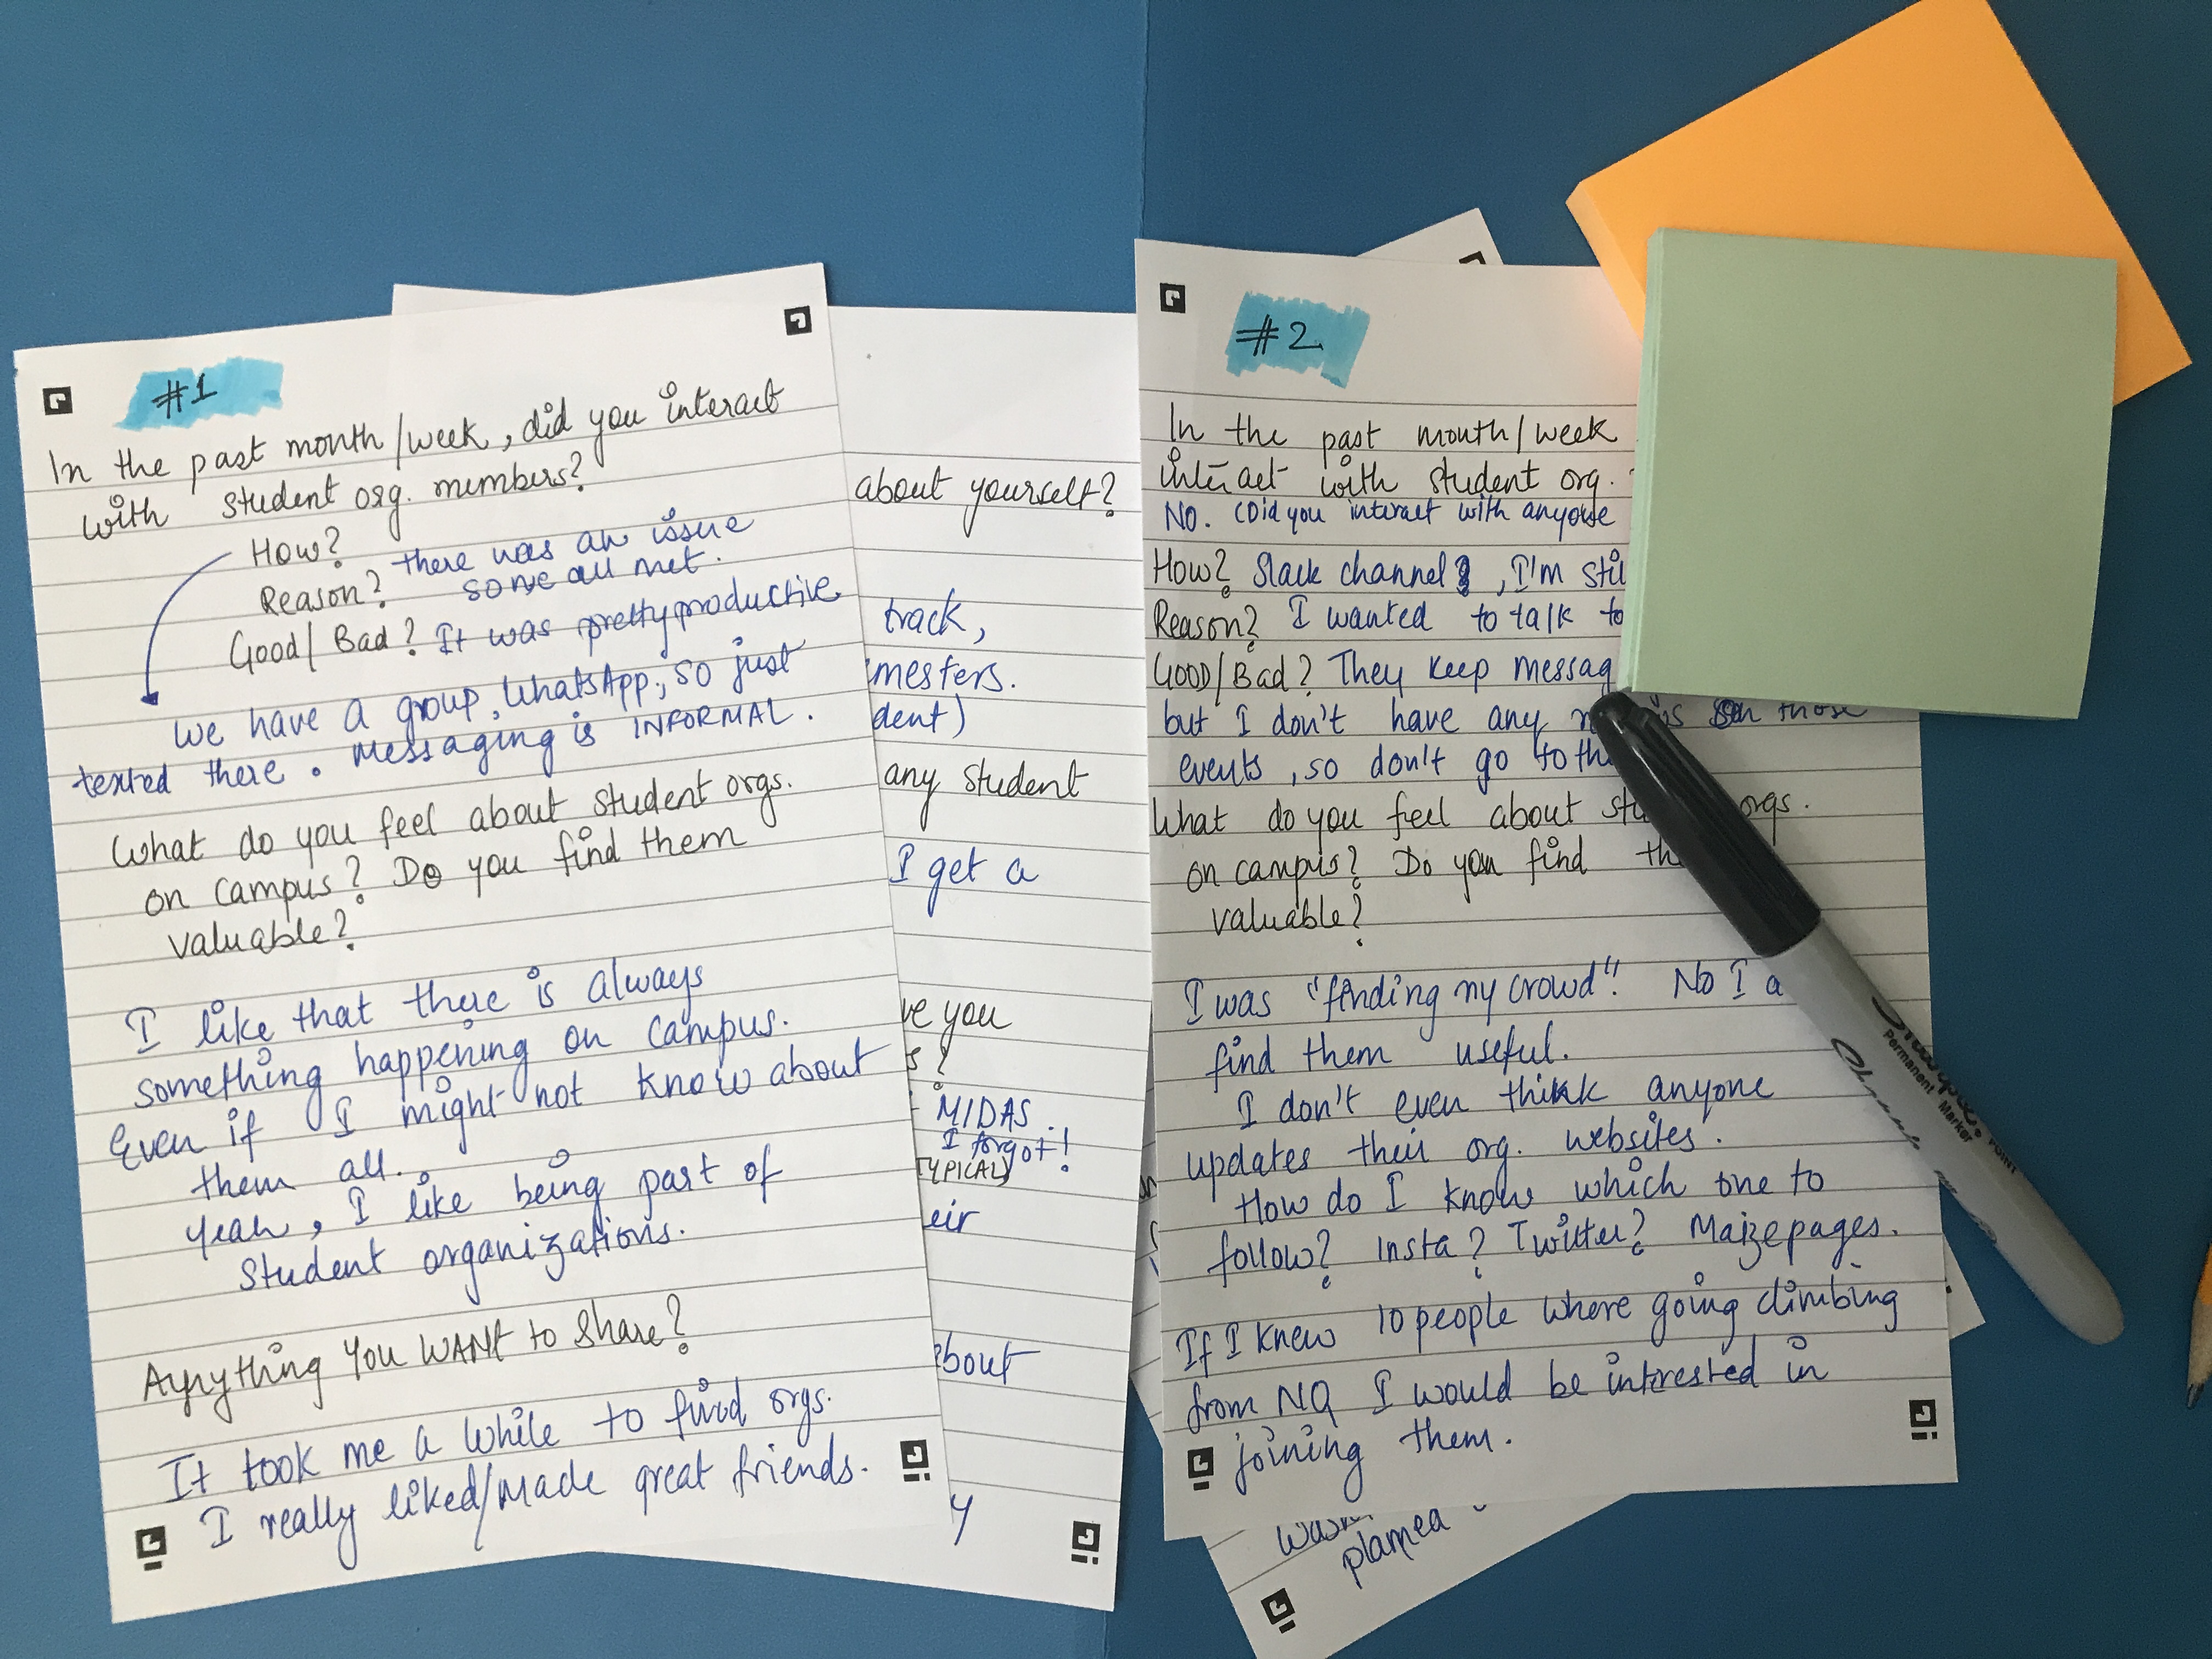 #1
In the past month/week, did you interact
with student org. members?
How?
Reason? there was an issue
so we all met.
Good/Bad? It was pretty productive
We have a group, WhatsApp, so just
texted there. Messaging is INFORMAL.
What do you feel about student orgs.
on campus? Do you find them
valuable?
I like that there is always
something happening on campus.
Even if I might not know about
them all.
Yeah, I like being part of
student organizations.
Anything YOU WANT to share?
It took me a while to find orgs.
I really liked/made great friends.
about yourself?
track,
mesters.
dent)
any student
I get a
ve you
s?
MIDAS.
I forgot!
TYPICAL)
eir
about
y
#2
In the past month/week
interact with student org.
No. (Did you interact with anyone
How? Slack channel, I'm stil
Reason? I wanted to talk to
GOOD/Bad? They keep messag
but I don't have any on those
events, so don't go to th
What do you feel about stu orgs.
on campus? Do you find th
valuable?
I was "finding my crowd"! No I a
find them useful.
I don't even think anyone
updates their org. websites.
How do I know which one to
follow? Insta? Twitter? Maizepages.
If I knew 10 people where going climbing
from NQ I would be interested in
joining them.
Permanent Marker
POINT